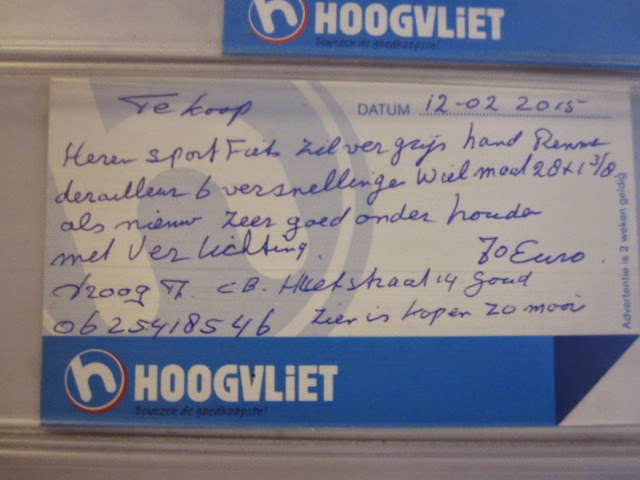 HOOGVLIET
Bewezen de goedkoopste!
Te koop
DATUM 12-02 2015
Heren sport Fiets Zilver grijs hand Remme
derailleur 6 versnellinge Wiel maat 28x1 3/8
als nieuw Zeer goed onder houde
met Verlichting. 70 Euro.
Vroog T. CB. Huetstraat 14 Goud
0625418546 Zien is kopen zo mooi
Advertentie is 2 weken geldig
HOOGVLIET
Bewezen de goedkoopste!